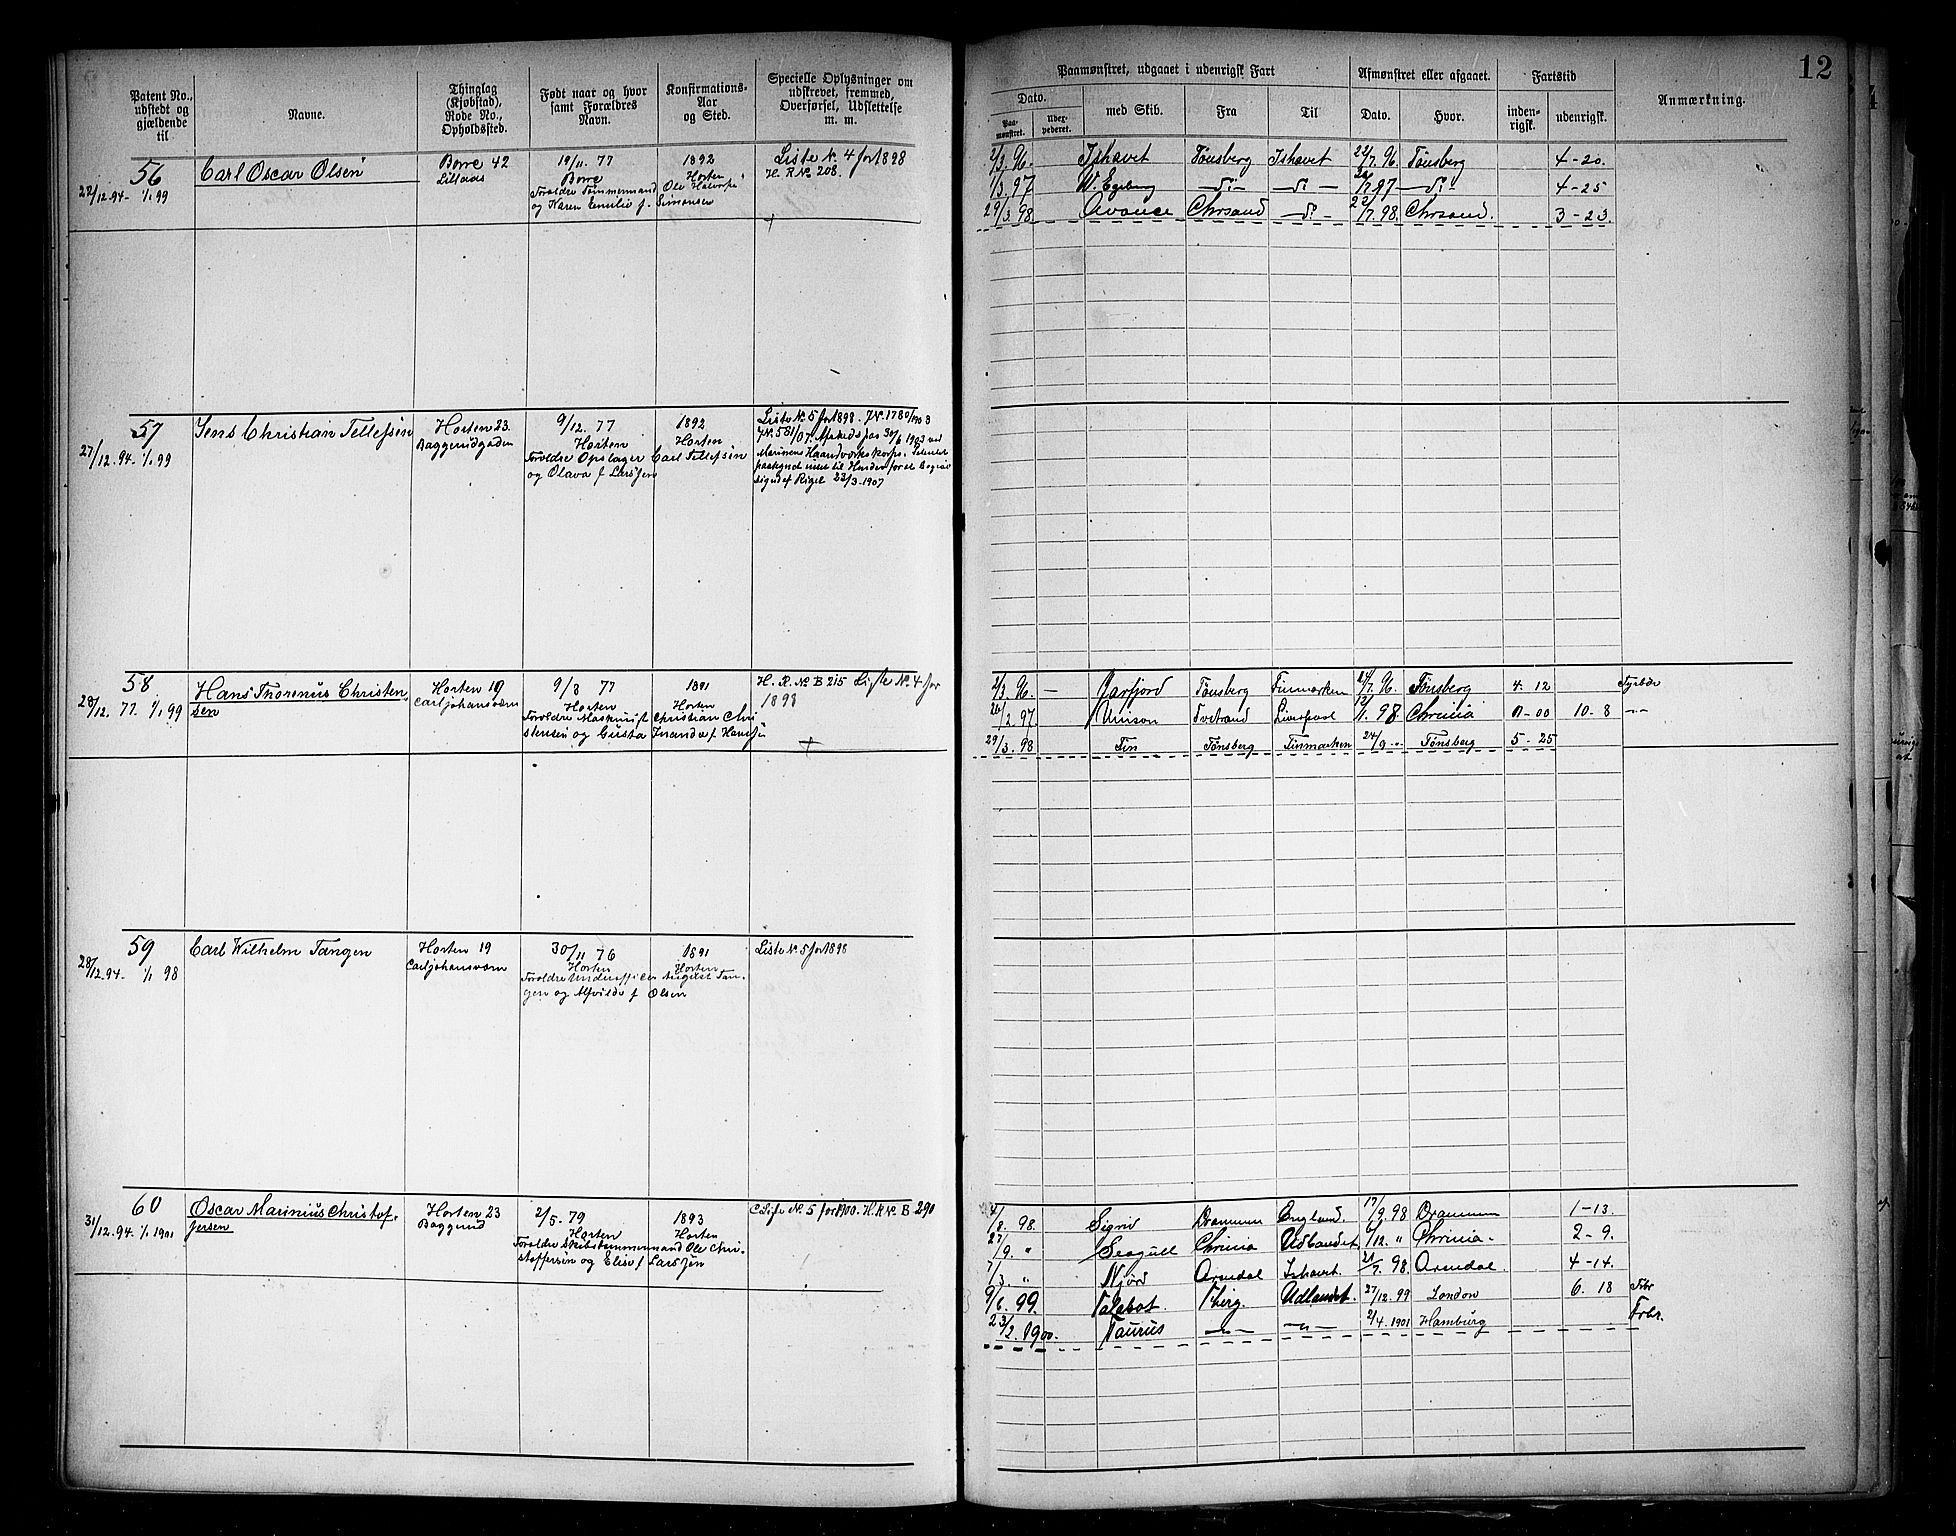 12
Patent No.,
udstedt og
gjældende
til
Navne.
Thinglag
(Kjøbstad),
Rode No.,
Opholdssted.
Født naar og hvor
samt Forældres
Navn.
Konfirmations-
Aar
og Sted.
Specielle Oplysninger om
udskrevet, fremmed,
Overførsel, Udslettelse
m. m.
Paamønstret, udgaaet i udenrigsk Fart
Afmønstret eller afgaaet.
Fartstid
Anmærkning.
Dato.
Paa-
mønstret.
med Skib.
Fra
Til
Dato.
Hvor.
inden-
rigsk.
udenrigsk.
56
22/12.94- 1/1 99
Carl Oscar Olsen
Borre 42
Lillaas
19/11 77
Borre
Foreldre Tømmermand Ole Halvorse
og Karen Emilie f. Simonsen
1892
Horten
Liste N. 4 for 1898
H. R No. 208.
2/3.96. Ishavet Tønsberg Ishavet 22/7.96. Tønsberg 4-20.
1/3.97 W. Egeberg 97 4-25
29/3.98. Avance Chrsand 22/7.98. Chrsand. 3-23.
57
27/12.94. 1/1 99
Jens Christian Tellefsen
Horten 23
Baggerudgaden
9/12. 77
Horten
Foreldre Opslager Carl Tellefsen
og Olava f Larssen
1892
Horten
Liste N. 5 for 1898. 7N. 1780/1903
7N. 581/07. Afskedspas 30/6 1903 ved
Marinens Haandverkskorps.
23/3-1907
58
28/12. 77. 1/1 99
Hans Thorenus Christen
sen
Horten 19
Carljohansværn
9/8 77
Horten
Foreldre Maskinist Christian Chri
stensen og Gusta f Hans
1891
Horten
H. R. No B 215 Liste N. 4 for
1898
2/3.96. - Jarfjord Tønsberg Finmarken 24/7.96. Tønsberg 4. 12
26/2 97. Unison Tvetrand Liverpool 12/1. 98. Chrinia 0-00 10-8
29/3.98 Fin Tønsberg Finmarken 24/9 Tønsberg 5-25
59
28/12.94- 1/1 98
Carl Wilhelm Tangen
Horten 19
Carljohansværn
30/11 76
Horten
Foreldre Underofficer August Tan-
gen og Alvilde f Olsen
1891
Horten
Liste N. 5 for 1898
60
31/12.94. 1/1 1901
Oscar Marinius Christof-
fersen
Horten 23
Baggerud
2/5. 79
Horten
Foreldre Skibstømmermand Ole Chri-
stoffersen og Elise f Larssen
1893
Horten
Liste N. 5 for 1900. H. R N. B 290
/8. 98. Sigrid Drammen England. 17/9.98 Drammen 1-13.
27/9. " Seagull Chrinia Udlandet 6/12. " Chrinia- 2-9.
7/3. " Njörd Arendal Ishavet. /7. 98. Arendal. 4-14.
9/6. 99. Talabot. Tberg. Udlandet. 27/12.99 London 6. 18
23/2. 1900. Taurus 2/4. 1901 Hamburg Frbr.